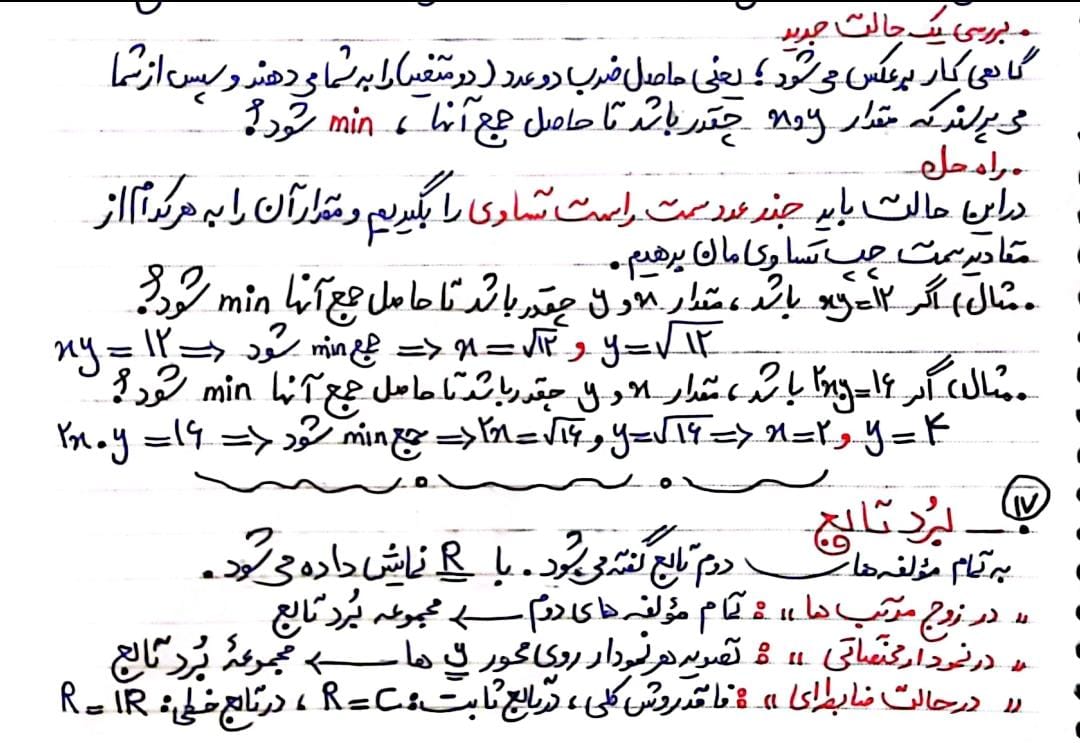 • بررسی یک حالت جدید
گاهی کار برعکس می‌شود؛ یعنی حاصل ضرب دو عدد (دو متغیر) را به شما می دهند و سپس از شما
می پرسند که مقدار x و y چقدر باشد تا حاصل جمع آنها، min شود؟
• راه حل
در این حالت باید جذر عدد سمت راست تساوی را بگیریم و مقدار آن را به هر کدام از
مقادیر سمت چپ تساوی مان بدهیم.
• مثال) اگر xy=۱۲ باشد، مقدار x و y چقدر باشد تا حاصل جمع آنها min شود؟
xy = ۱۲ ⇒ جمع min شود ⇒ x=√۱۲ و y=√۱۲
• مثال) اگر ۲xy=۱۶ باشد، مقدار x و y چقدر باشد تا حاصل جمع آنها min شود؟
۲x.y =۱۶ ⇒ جمع min شود ⇒ ۲x=√۱۶ و y=√۱۶ ⇒ x=۲ و y=۴
۱۷
بُرد تابع
به تمام مؤلفه‌های دوم تابع گفته می‌شود. با R نمایش داده می‌شود.
" در زوج مرتب ها ": تمام مؤلفه های دوم ← مجموعه بُرد تابع
" در نمودار مختصاتی ": تصویر هر نمودار روی محور y ها ← مجموعهٔ بُرد تابع
" در حالت ضابطه‌ای ": فاقد روش کلی، در تابع ثابت: R=C، در تابع خطی: R=ℝ